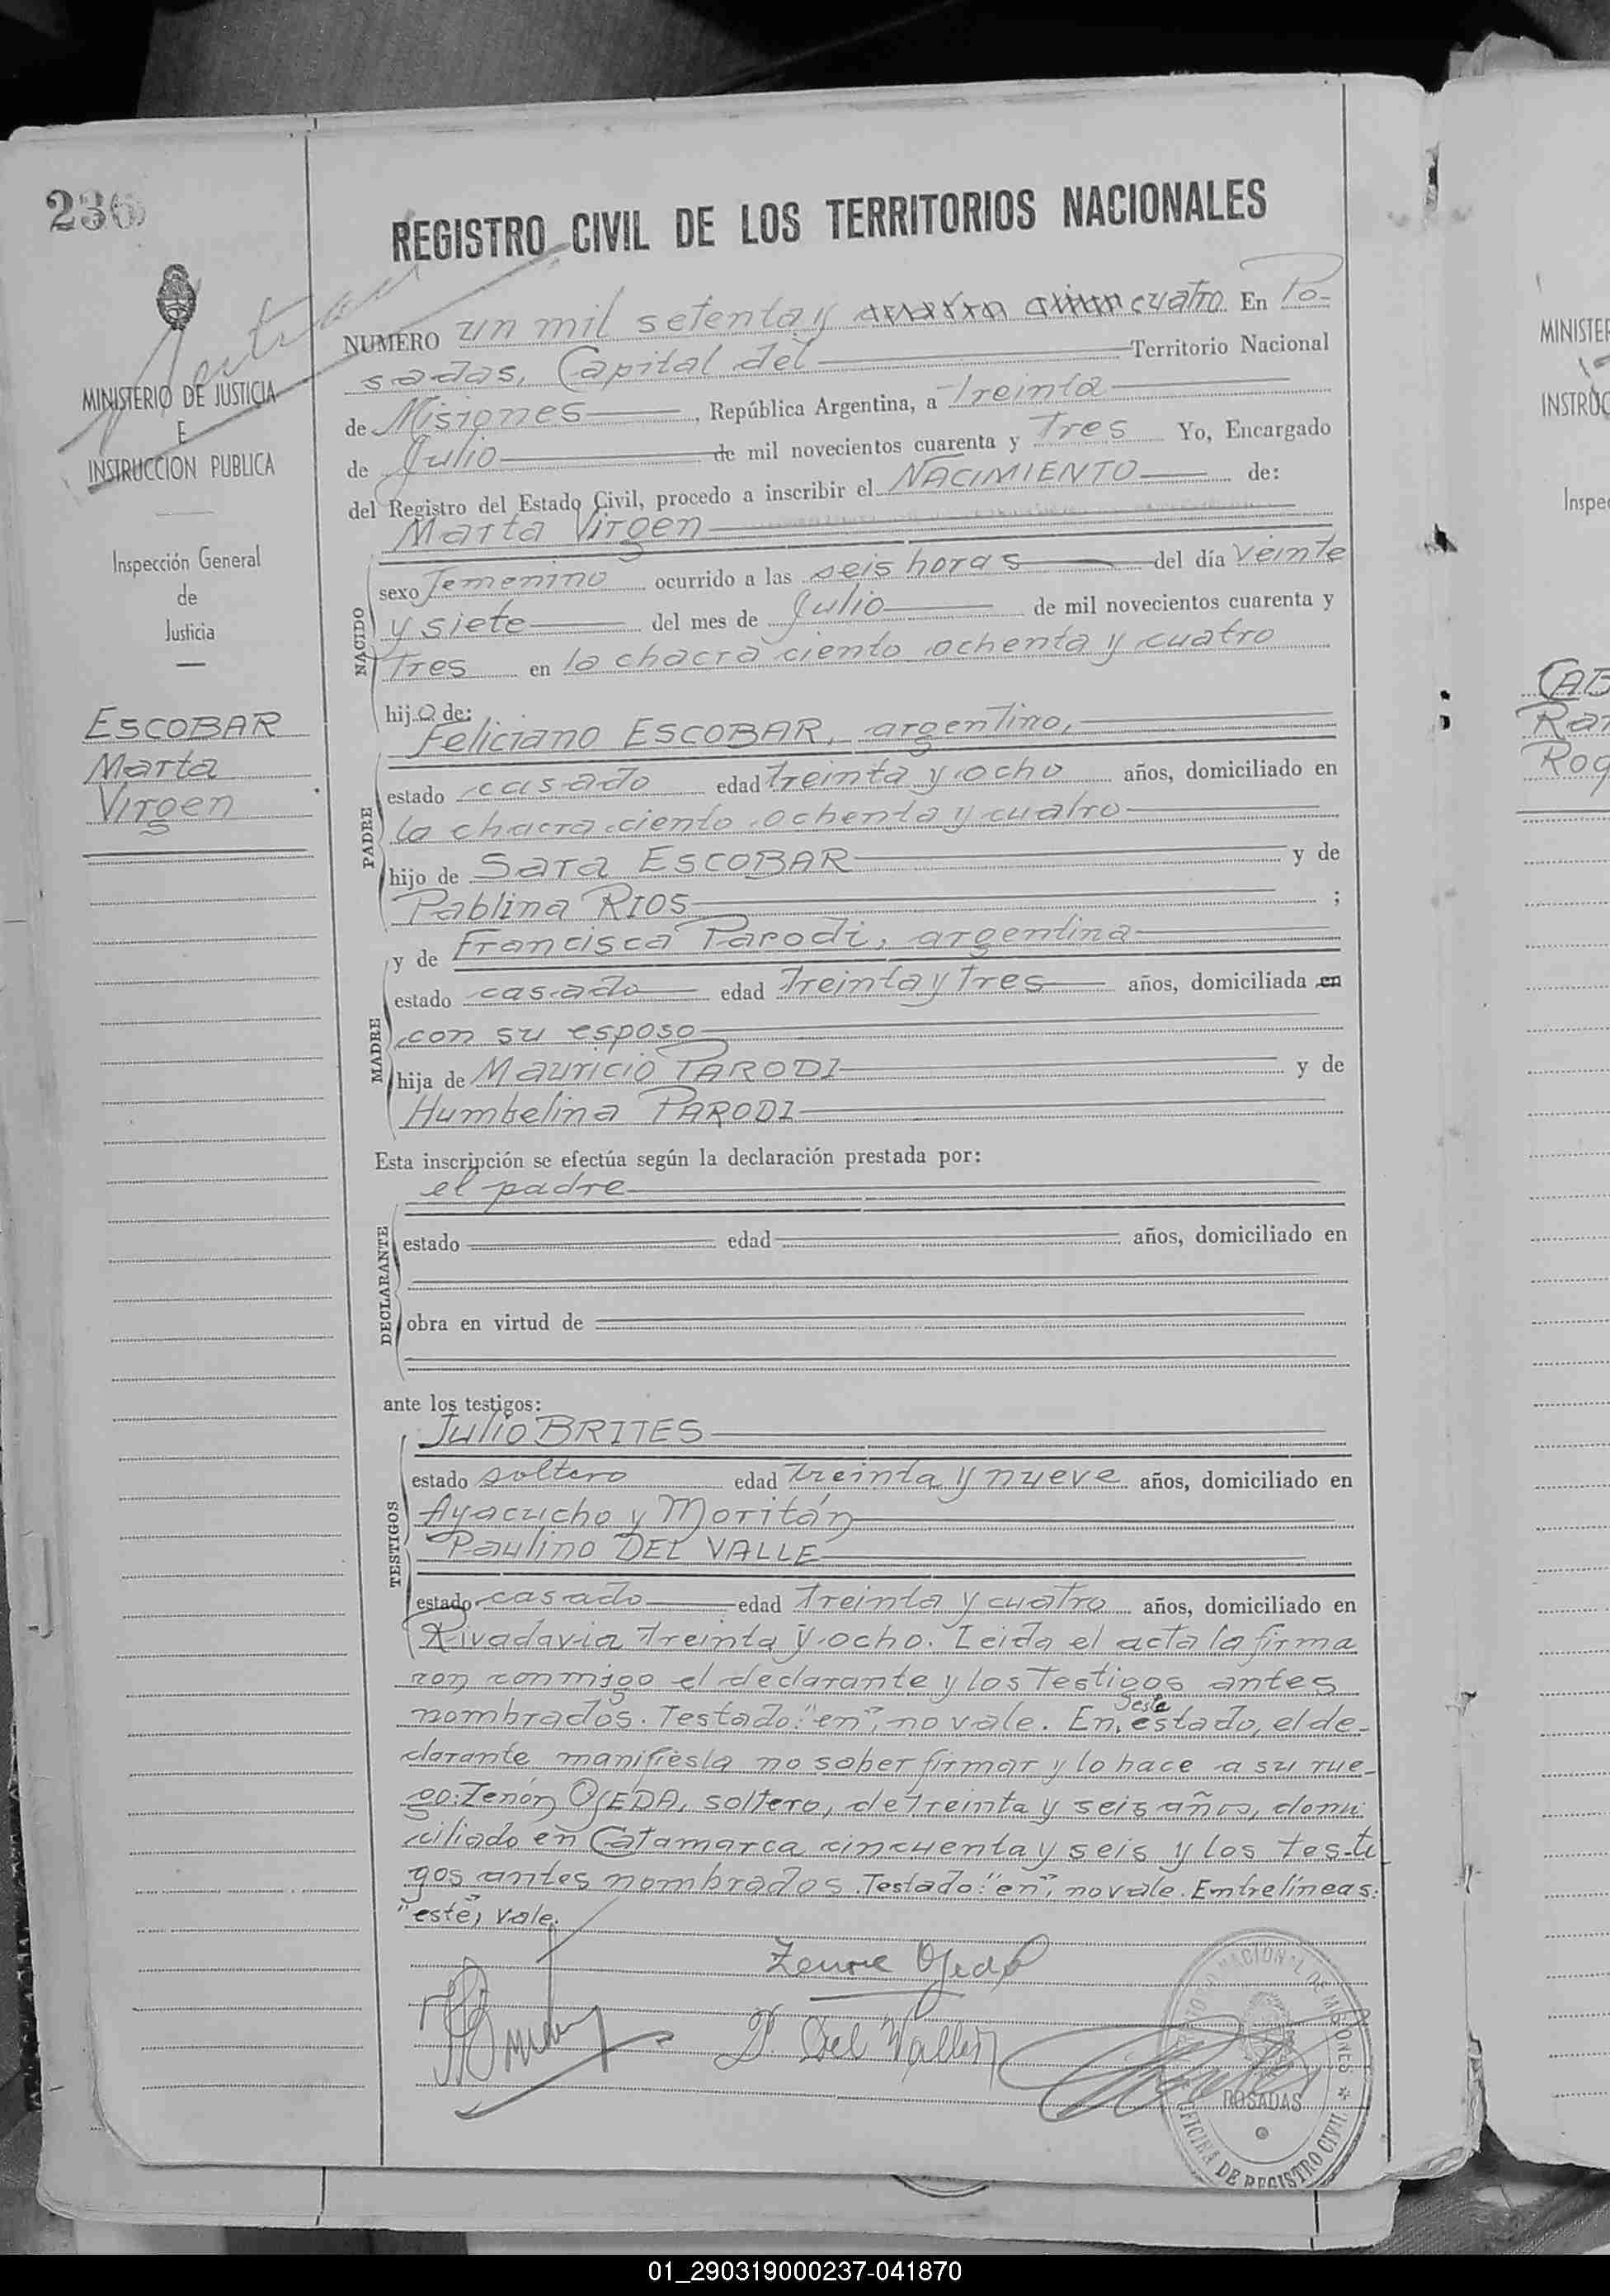 236
REGISTRO CIVIL DE LOS TERRITORIOS NACIONALES
MINISTERIO DE JUSTICIA
E
INSTRUCCION PUBLICA
Inspección General
de
Justicia
ESCOBAR
Marta
Virgen
NUMERO un mil setenta y cuatro En Po-
sadas, Capital del Territorio Nacional
de Misiones, República Argentina, a Treinta
de Julio de mil novecientos cuarenta y Tres Yo, Encargado
del Registro del Estado Civil, procedo a inscribir el NACIMIENTO de:
Marta Virgen
NACIDO
sexo femenino ocurrido a las seis horas del día veinte
y siete del mes de Julio de mil novecientos cuarenta y
Tres en la chacra ciento ochenta y cuatro
hija de:
Feliciano ESCOBAR, argentino,
PADRE
estado casado edad treinta y ocho años, domiciliado en
la chacra ciento ochenta y cuatro
hijo de Sara ESCOBAR y de
Pablina RIOS ;
y de Francisca Parodi, argentina
MADRE
estado casada edad Treinta y Tres años, domiciliada en
con su esposo
hija de Mauricio PARODI y de
Humbelina PARODI
Esta inscripción se efectúa según la declaración prestada por:
el padre
DECLARANTE
estado edad años, domiciliado en
obra en virtud de
ante los testigos:
Julio BRITES
TESTIGOS
estado soltero edad treinta y nueve años, domiciliado en
Ayacucho y Moritán
Paulino DEL VALLE
estado casado edad Treinta y cuatro años, domiciliado en
Rivadavia treinta y ocho. Leida el acta la firma
ron conmigo el declarante y los Testigos antes
nombrados. Testado: "en", no vale. En este estado, el de-
clarante manifiesta no saber firmar y lo hace a su rue-
go: Zenón OJEDA, soltero, de Treinta y seis años, domi
ciliado en Catamarca cincuenta y seis y los testi
gos antes nombrados. Testado: "en", no vale. Entrelíneas:
"este", vale.
Ojeda
P. Del Valle
POSADAS
OFICINA DE REGISTRO CIVIL
MINISTER
INSTRUC
Inspe
CAB
Ra
Roq
01_290319000237-041870